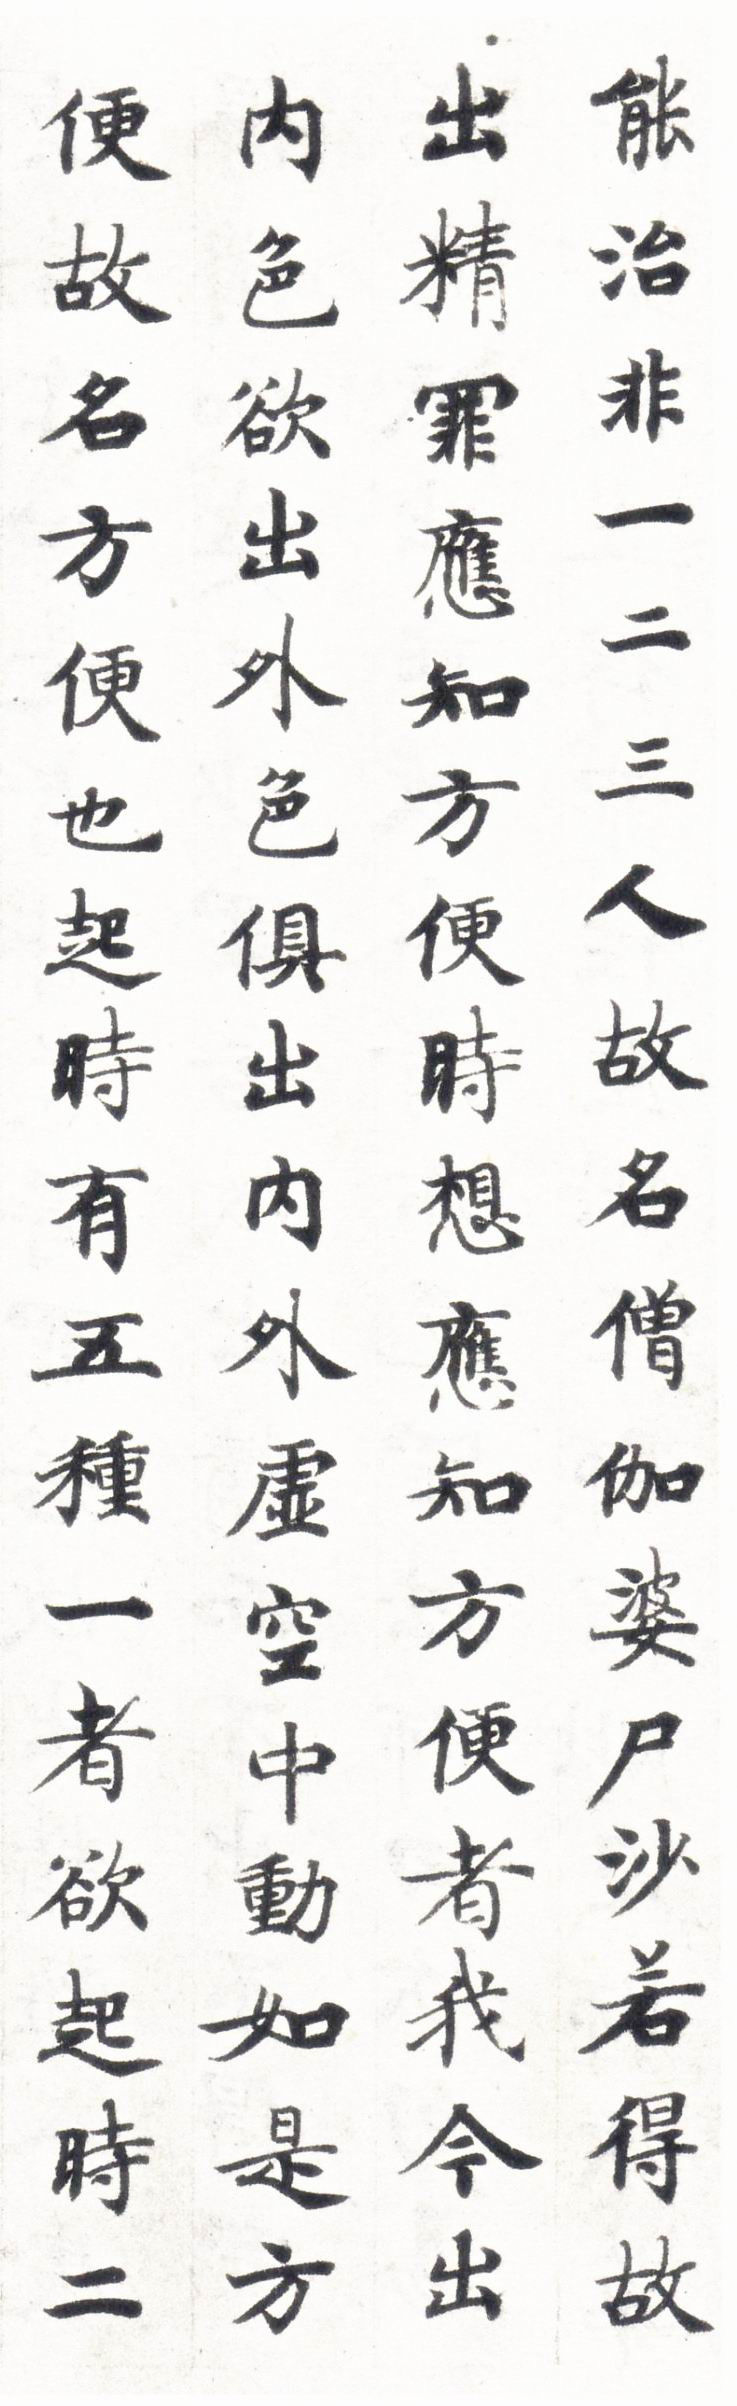 能治非一二三人故名僧伽婆尸沙若得故
出精罪應知方便時想應知方便者我今出
内色欲出外色俱出内外虚空中動如是方
便故名方便也起時有五種一者欲起時二